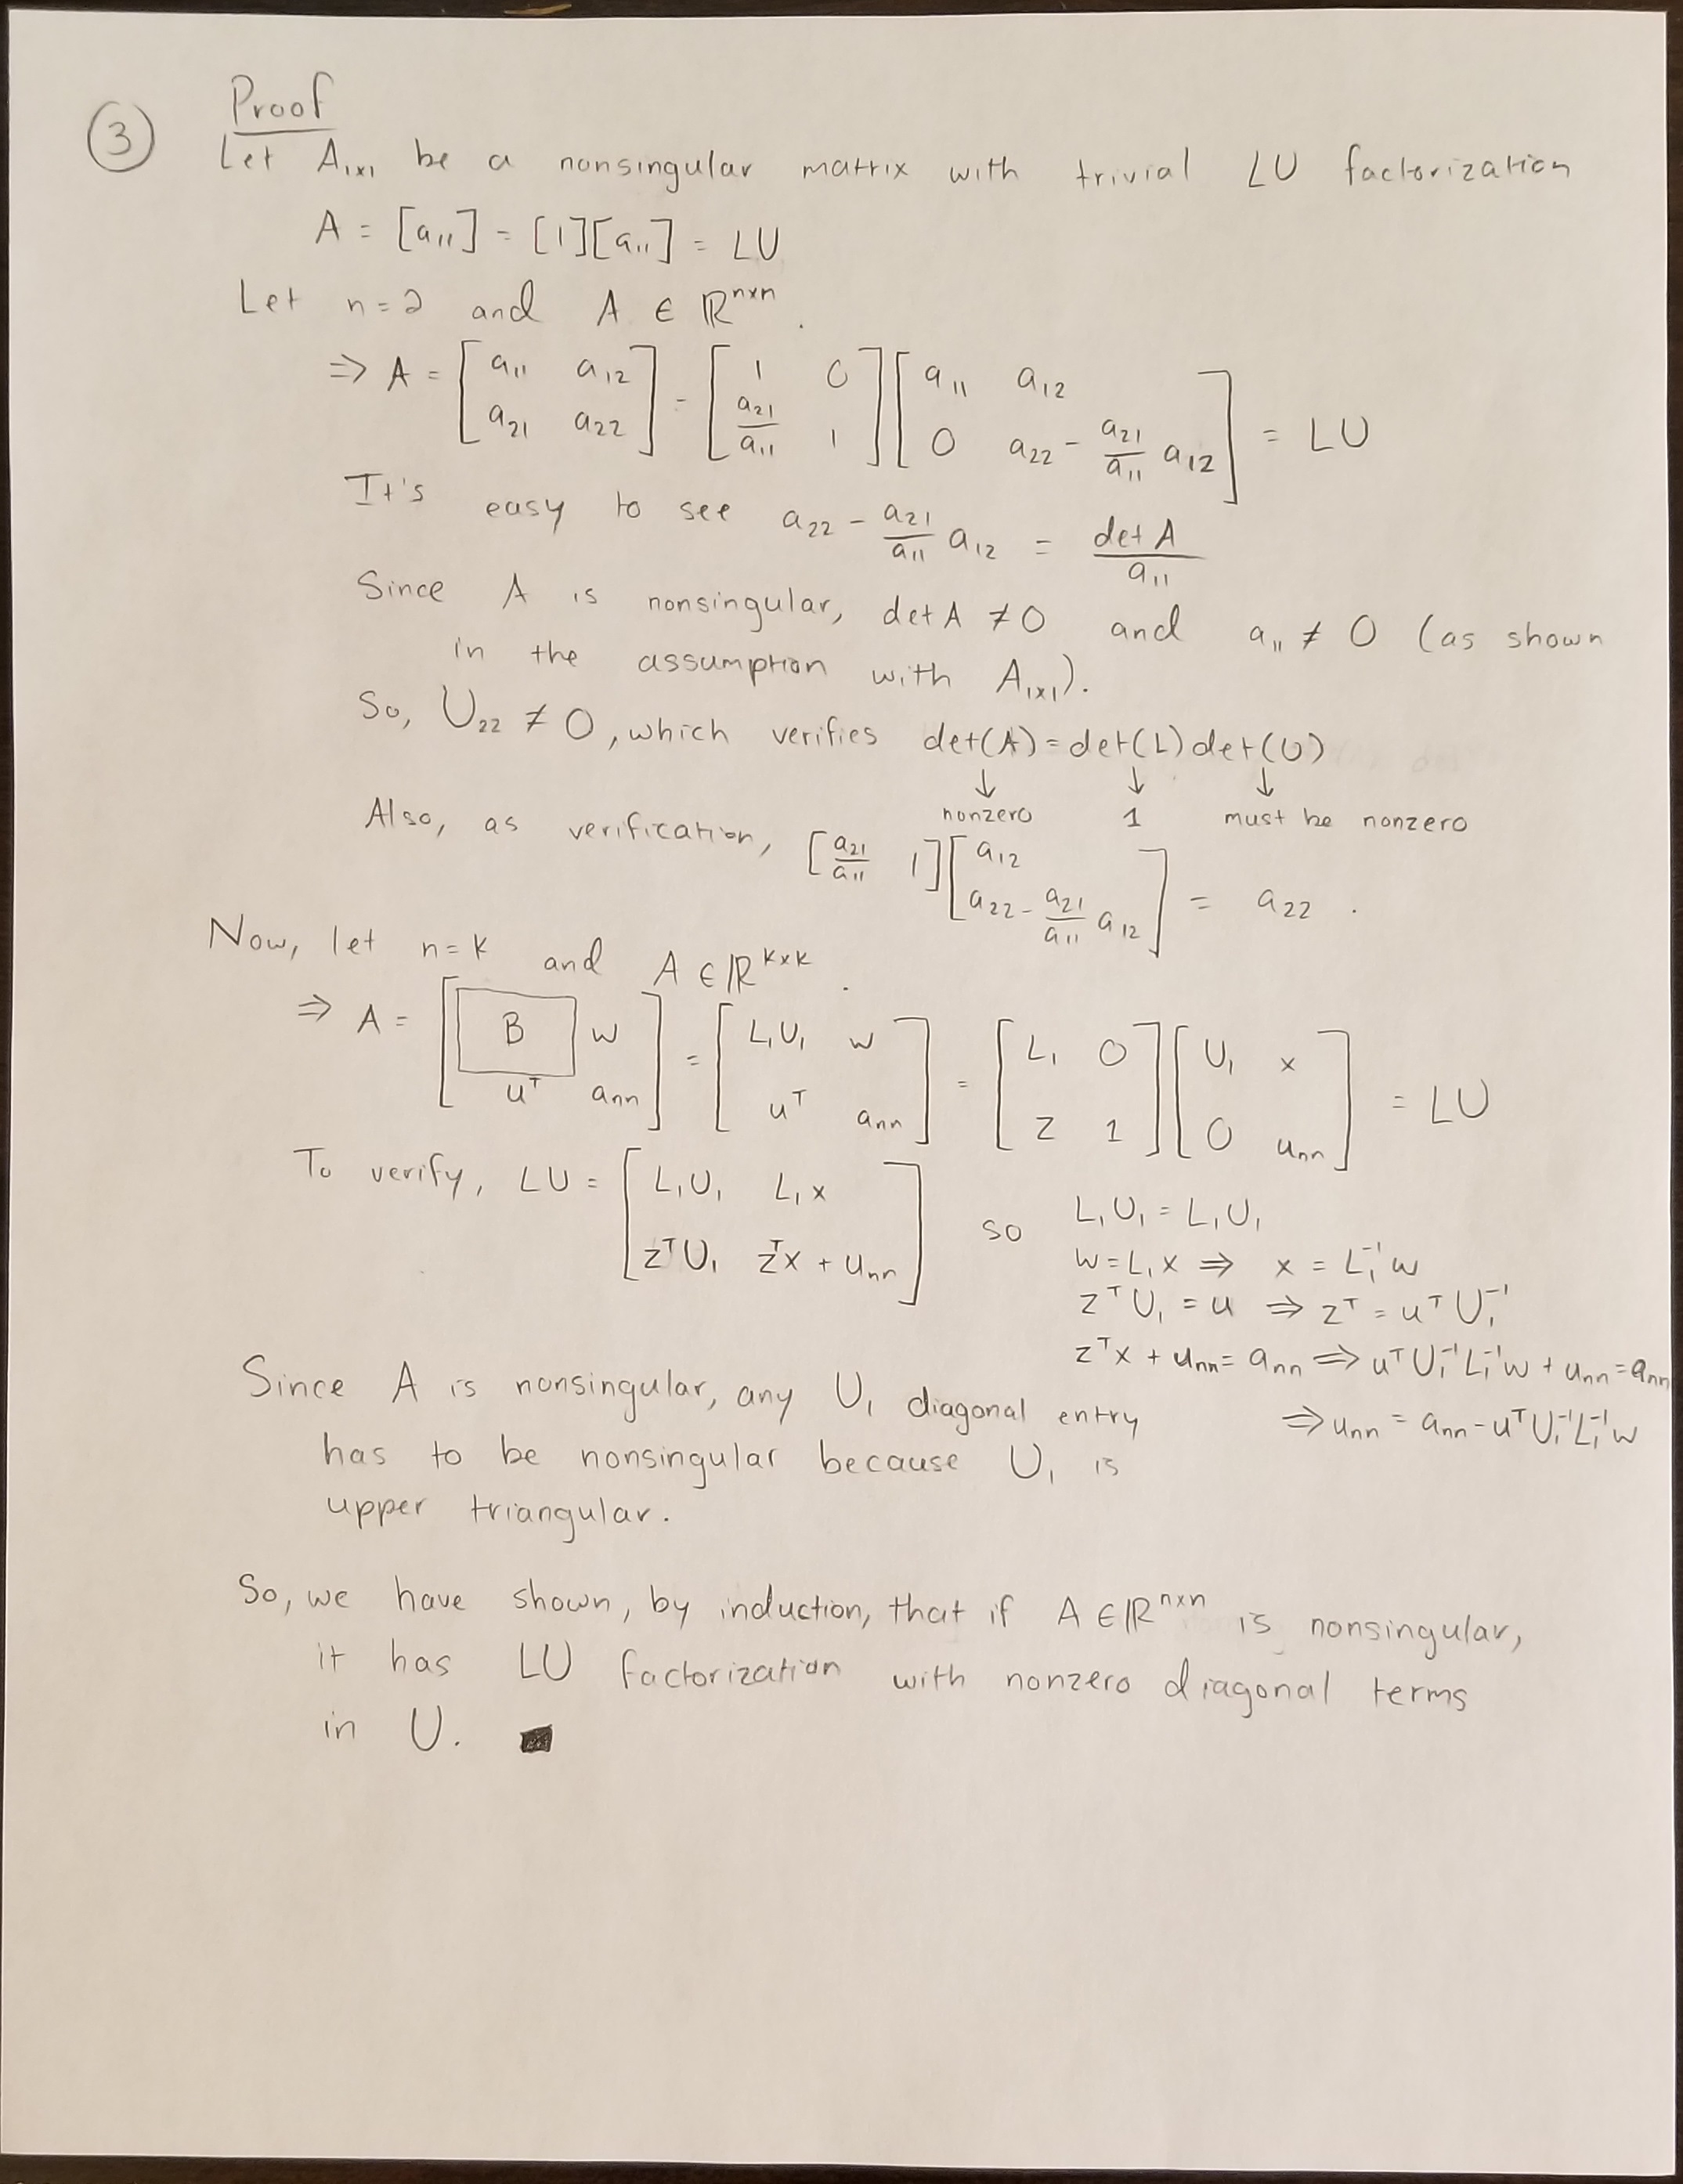 ③ Proof
Let A₁ₓ₁ be a nonsingular matrix with trivial LU factorization
A = [a₁₁] = [1][a₁₁] = LU
Let n=2 and A ∈ ℝⁿˣⁿ.
⇒ A = [a₁₁ a₁₂; a₂₁ a₂₂] = [1 0; a₂₁/a₁₁ 1][a₁₁ a₁₂; 0 a₂₂ - a₂₁/a₁₁ a₁₂] = LU
It's easy to see a₂₂ - a₂₁/a₁₁ a₁₂ = det A / a₁₁
Since A is nonsingular, det A ≠ 0 and a₁₁ ≠ 0 (as shown
in the assumption with A₁ₓ₁).
So, U₂₂ ≠ 0, which verifies det(A) = det(L) det(U)
↓ ↓ ↓
nonzero 1 must be nonzero
Also, as verification, [a₂₁/a₁₁ 1][a₁₂; a₂₂ - a₂₁/a₁₁ a₁₂] = a₂₂.
Now, let n=k and A ∈ ℝᵏˣᵏ.
⇒ A = [B w; uᵀ aₙₙ] = [L₁U₁ w; uᵀ aₙₙ] = [L₁ 0; z 1][U₁ x; 0 uₙₙ] = LU
To verify, LU = [L₁U₁ L₁x; zᵀU₁ zᵀx + uₙₙ] so L₁U₁ = L₁U₁
w = L₁x ⇒ x = L₁⁻¹w
zᵀU₁ = u ⇒ zᵀ = uᵀU₁⁻¹
zᵀx + uₙₙ = aₙₙ ⇒ uᵀU₁⁻¹L₁⁻¹w + uₙₙ = aₙₙ
⇒ uₙₙ = aₙₙ - uᵀU₁⁻¹L₁⁻¹w
Since A is nonsingular, any U₁ diagonal entry
has to be nonsingular because U₁ is
upper triangular.
So, we have shown, by induction, that if A ∈ ℝⁿˣⁿ is nonsingular,
it has LU factorization with nonzero diagonal terms
in U. ■